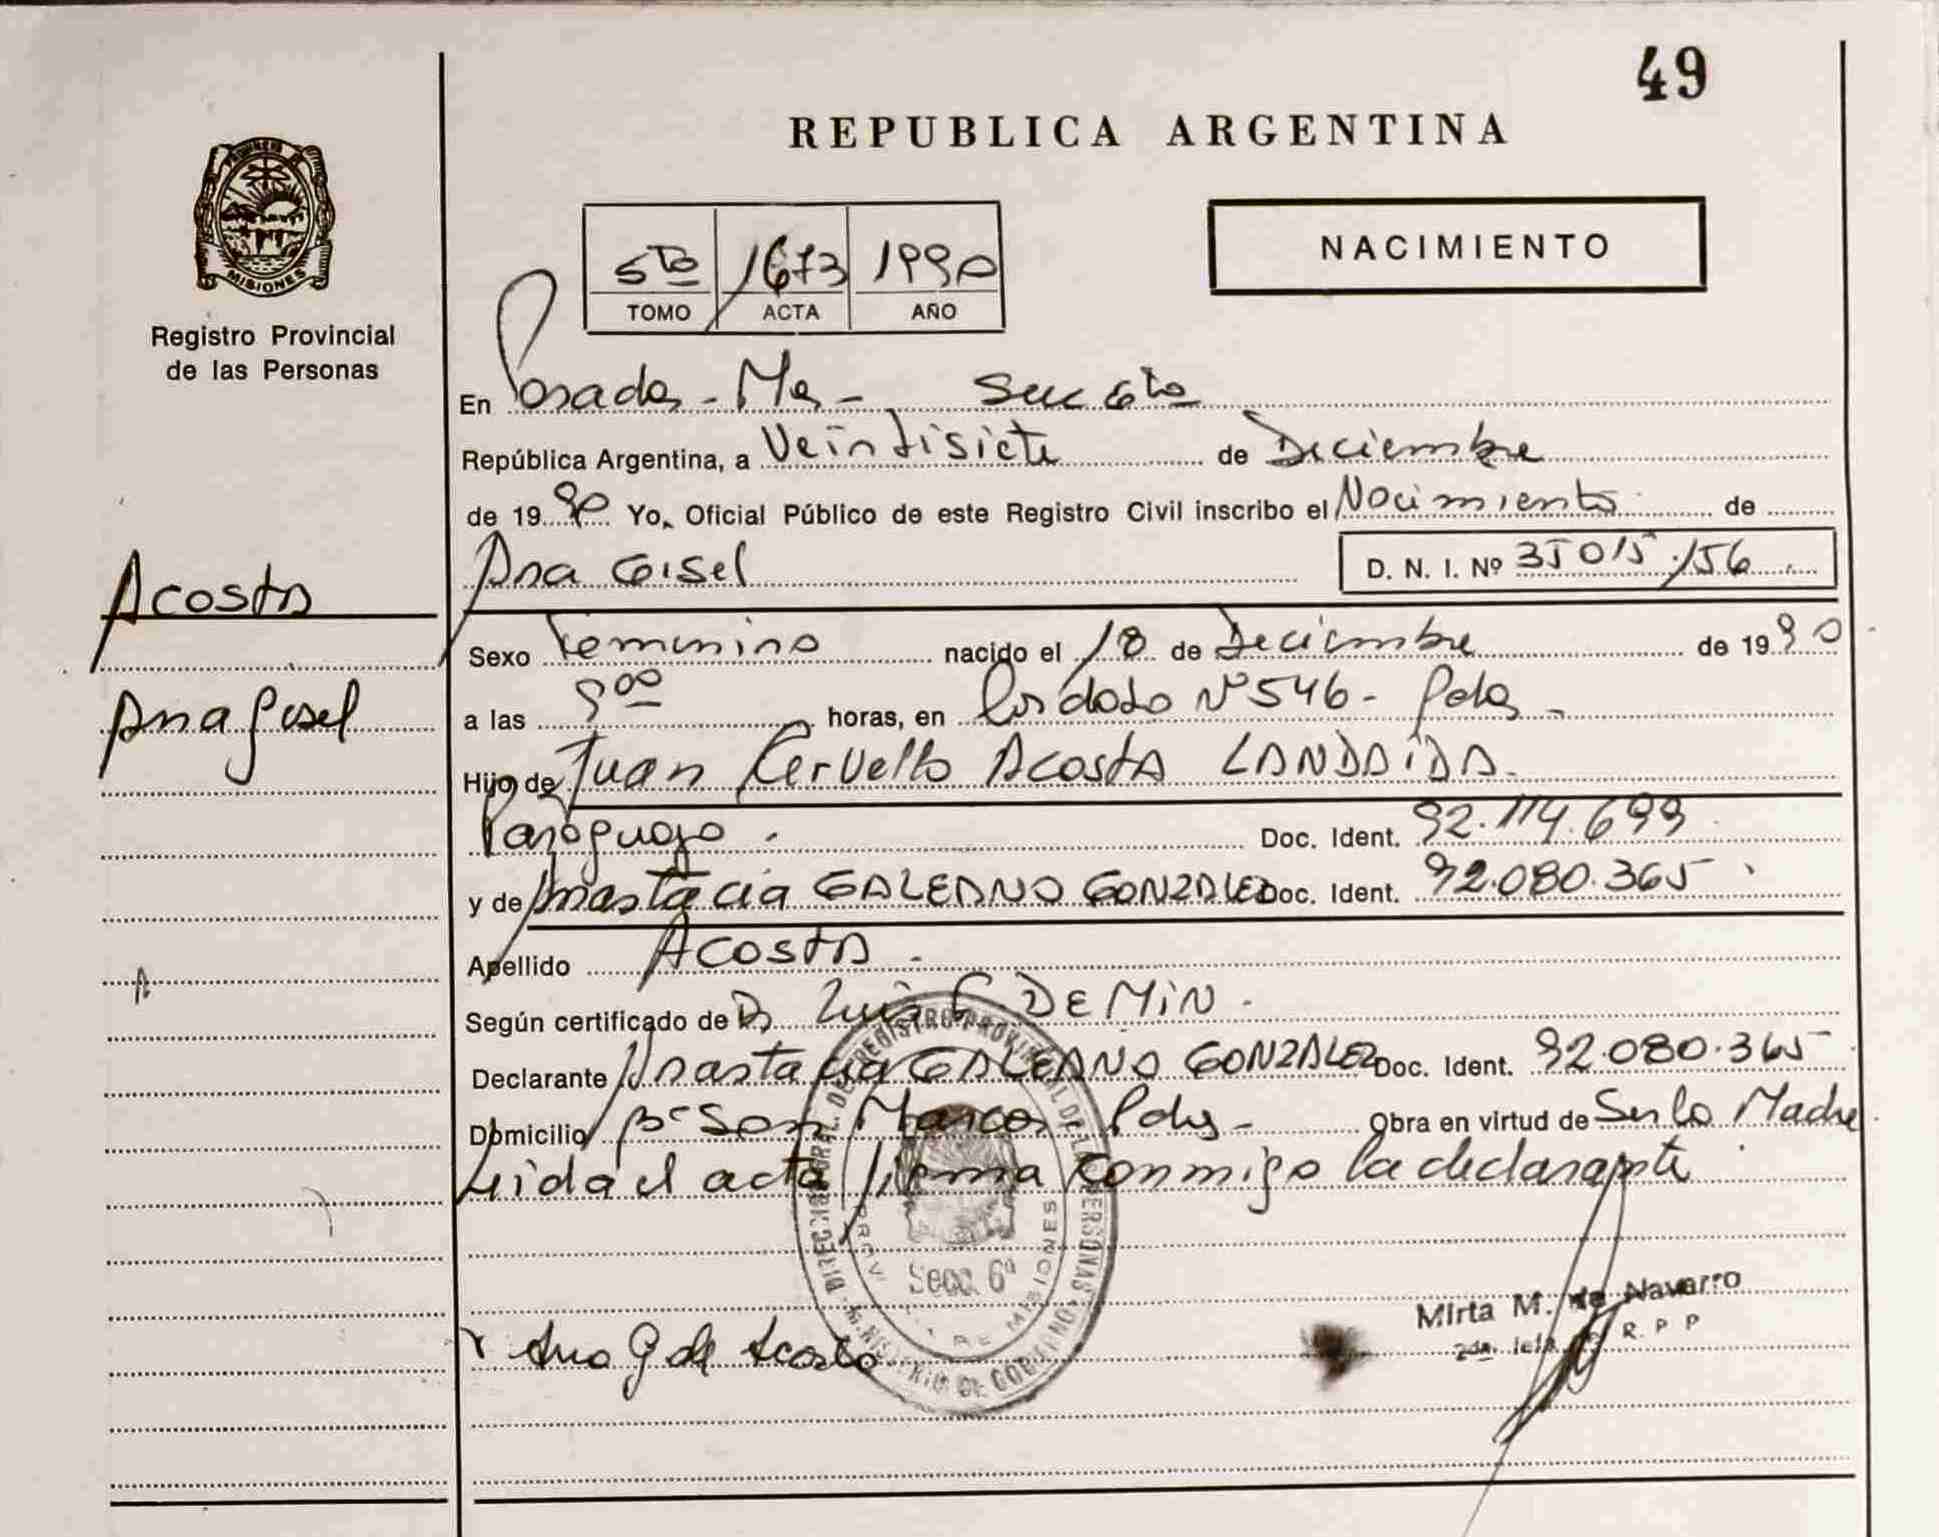 49
REPUBLICA ARGENTINA
NACIMIENTO
5to 1673 1990
TOMO ACTA AÑO
MISIONES
Registro Provincial
de las Personas
En Posadas - Mes - Secc 6ta
República Argentina, a Veintisiete de Diciembre
de 1990 Yo, Oficial Público de este Registro Civil inscribo el Nacimiento de
Ana Gisel D. N. I. Nº 35015.156
Acosta
Sexo Femenino nacido el 18 de Diciembre de 1990
Ana Gisel
a las 9 00 horas, en Nº 546 - Pdas -
Hijo de Juan Cervello Acosta LANDAIDA.
Paraguayo. Doc. Ident. 92.114.699
y de Anastacia GALEANO GONZALEZ Doc. Ident. 92.080.365
Apellido Acosta.
Según certificado de Dr Luis F. DEMIN.
Declarante Anastacia GALEANO GONZALEZ Doc. Ident. 92.080.365
Domicilio Bº San Marcos Pdas - Obra en virtud de Ser la Madre
Leida el acta firma conmigo la declarante
DIRECCION GRAL. DE REGISTRO PROVINCIAL DE LAS PERSONAS
MINISTERIO DE GOBIERNO
Secc. 6ª
Mirta M. de Navarro
2da. Jefa R. P. P
Ana G de Acosta